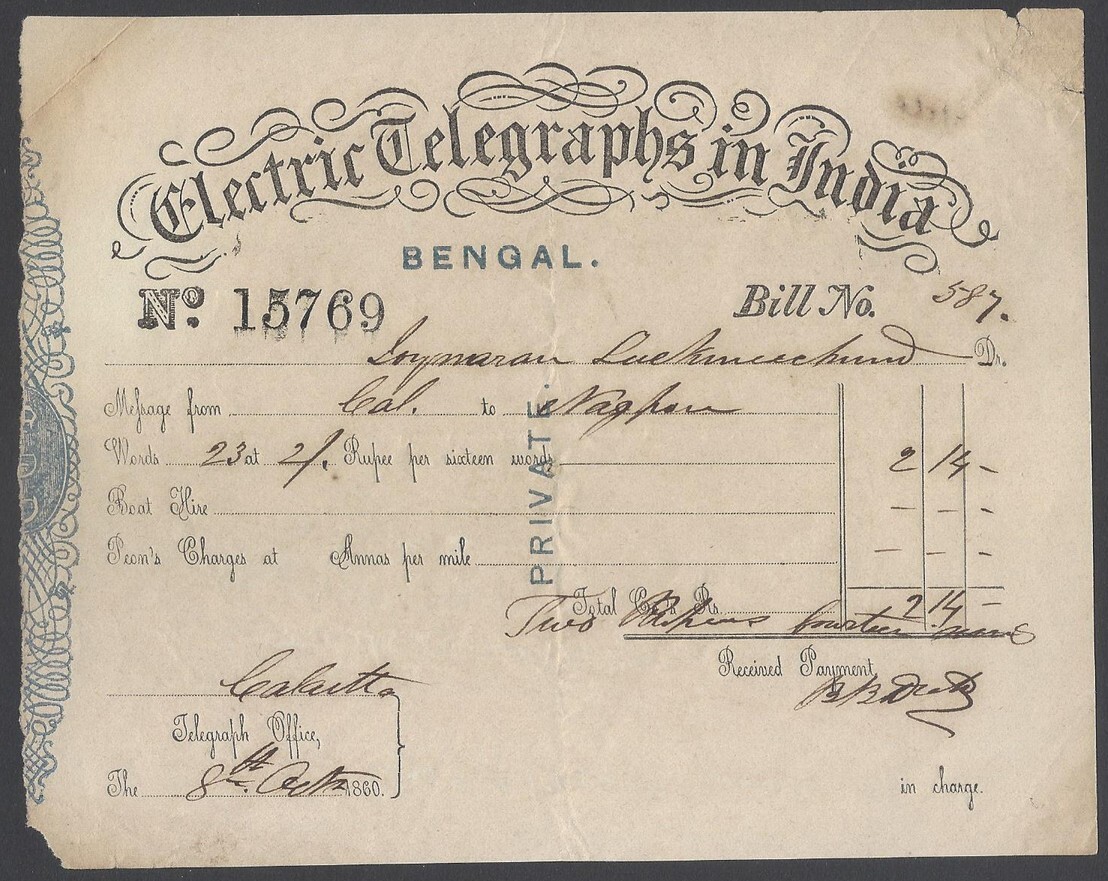 Electric Telegraphs in India
BENGAL.
No. 15769 Bill No. 587.
Joynaran Luckmeechund Dr.
Message from Cal. to Nagpore
Words 23 at 2/. Rupee per sixteen words 2 14 -
Boat Hire - - -
Peon's Charges at Annas per mile - - -
PRIVATE.
Total Co's Rs. 2 14 -
Two Rupees fourteen annas
Received Payment
Calcutta
Telegraph Office,
The 8th Octr 1860.
in charge.